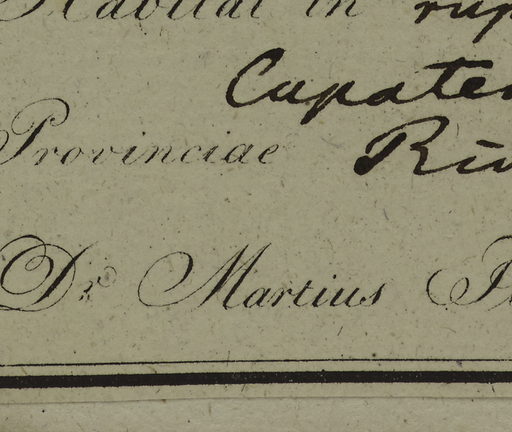 Habitat in rup
Cupaten
Provinciae Rio
Dr. Martius